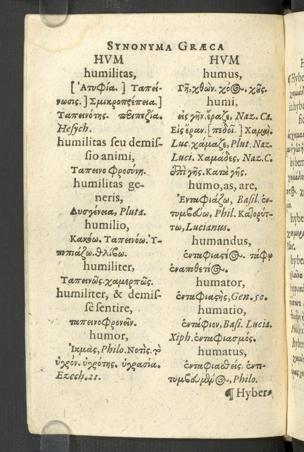 SYNONYMA GRÆCA
HVM
humilitas,
[Ἀτυφία.] Ταπεί-
νωσις.] Σμικροπρέπεια.]
Ταπεινότης.
Hesych.
humilitas seu demis-
sio animi,
Ταπεινοφροσύνη.
humilitas ge-
neris,
Δυσγένεια, Pluta.
humilio,
Κακόω. Ταπεινόω. Ὑ-
πωπιάζω. θλίβω.
humiliter,
Ταπεινῶς. χαμερπῶς.
humiliter, & demis-
sè sentire,
ταπεινοφρονεῖν.
humor,
Ἰκμὰς, Philo. Νοτὶς. τὸ
ὑγρόν. ὑγρότης. ὑγρασία.
Ezech. 21.
HVM
humus,
Γῆ. χθὼν. χοῦς.
huni,
εἰς γῆν. ἔραζε, Naz. Ca.
Εἰς ἔραν. [πέδοι.] Χαμαὶ.
Luc. χαμάζε, Plut. Naz.
Luci. Χαμάδες, Naz. C.
ἐπὶ γῆς. Κατὰ γῆς.
humo, as, are,
Ἐνταφιάζω, Basil. ἐν-
τυμβεύω, Phil. Κατορύτ-
τω, Lucianus.
humandus,
ἐνταφιαστέος. τάφῳ
humator,
ἐνταφιαστὴς, Gen. 50.
humatio,
ἐντάφιον, Basi. Lucia.
Xiph. ἐνταφιασμός.
humatus,
ἐνταφιασθείς. ἐντε-
Philo.
¶ Hyber-